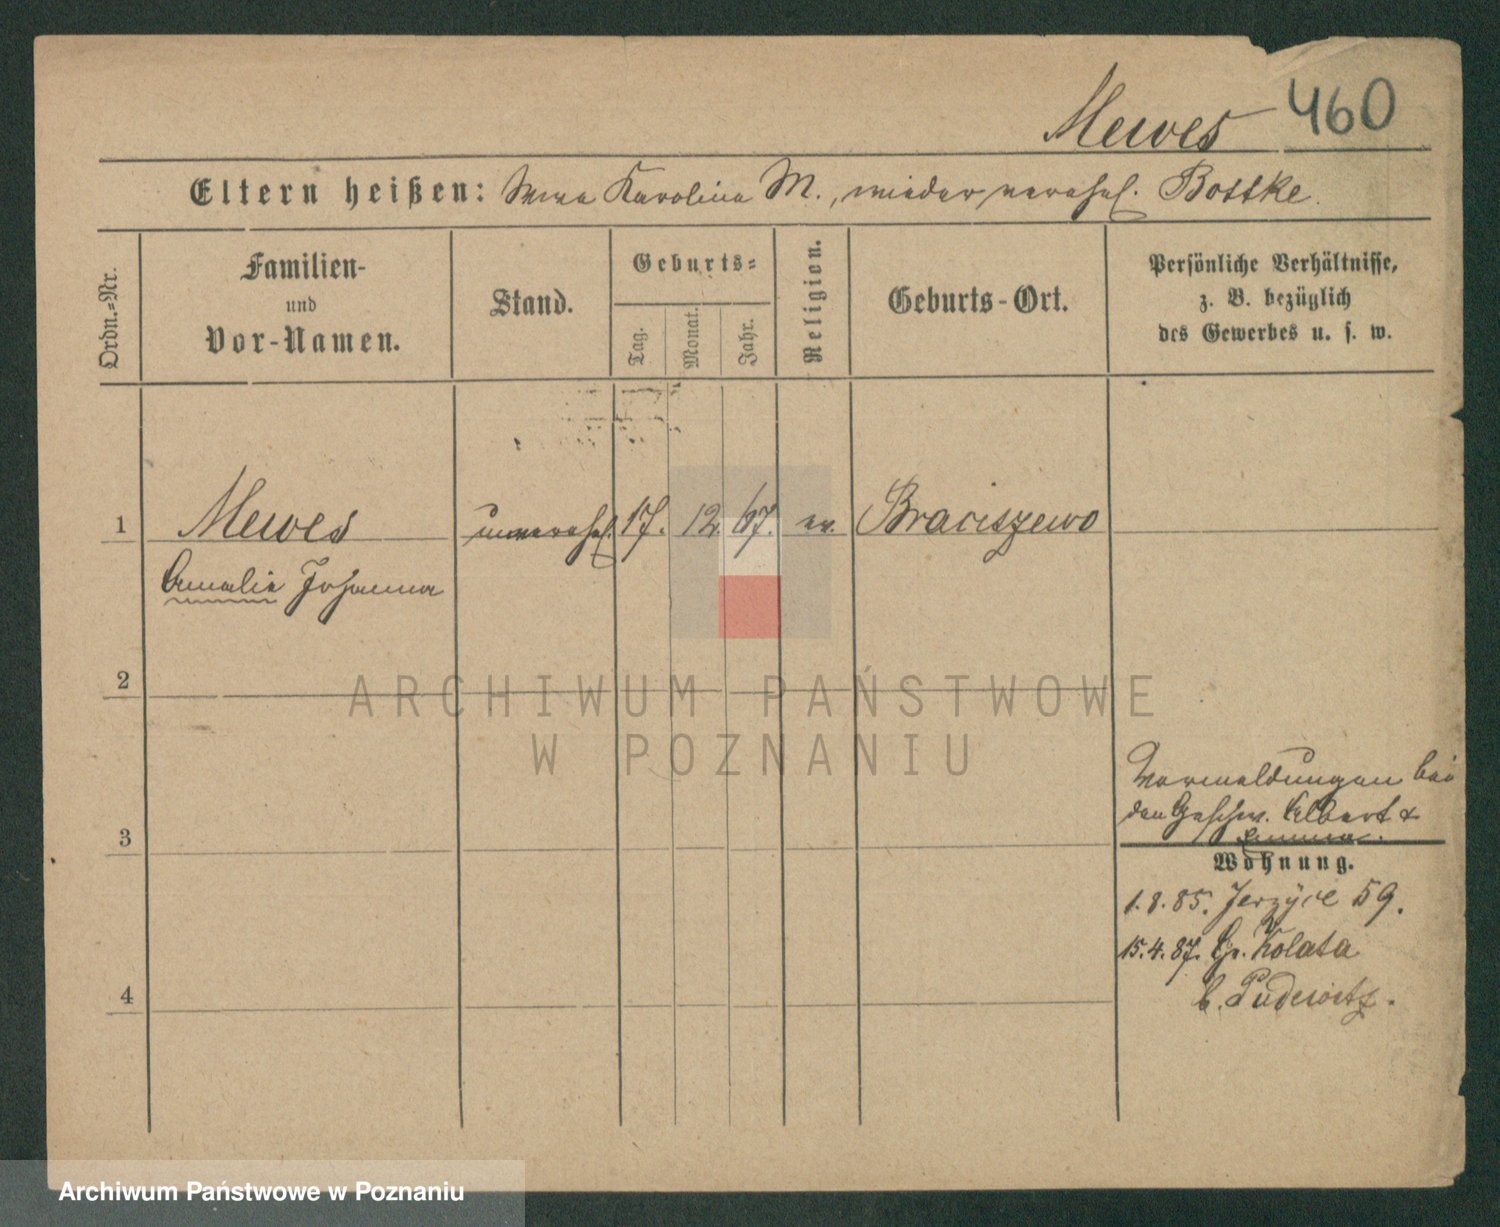 Mewes 460
Eltern heißen: Wwe Karolina M., wieder verehel. Bottke.
Ordn.-Nr.
Familien-
und
Vor-Namen.
Stand.
Geburts-
Tag.
Monat.
Jahr.
Religion.
Geburts-Ort.
Persönliche Verhältnisse,
z. B. bezüglich
des Gewerbes u. s. w.
1 Mewes unverehel. 17. 12. 67. ev. Braciszewo
Amalie Johanna
2
ARCHIWUM PAŃSTWOWE
W POZNANIU
Vormeldungen bei
3
den Geschw. Albert &
Emma.
Wohnung.
1.8.85. Jerzyce 59.
15.4.87. Kolata
4
b. Pudewitz.
Archiwum Państwowe w Poznaniu